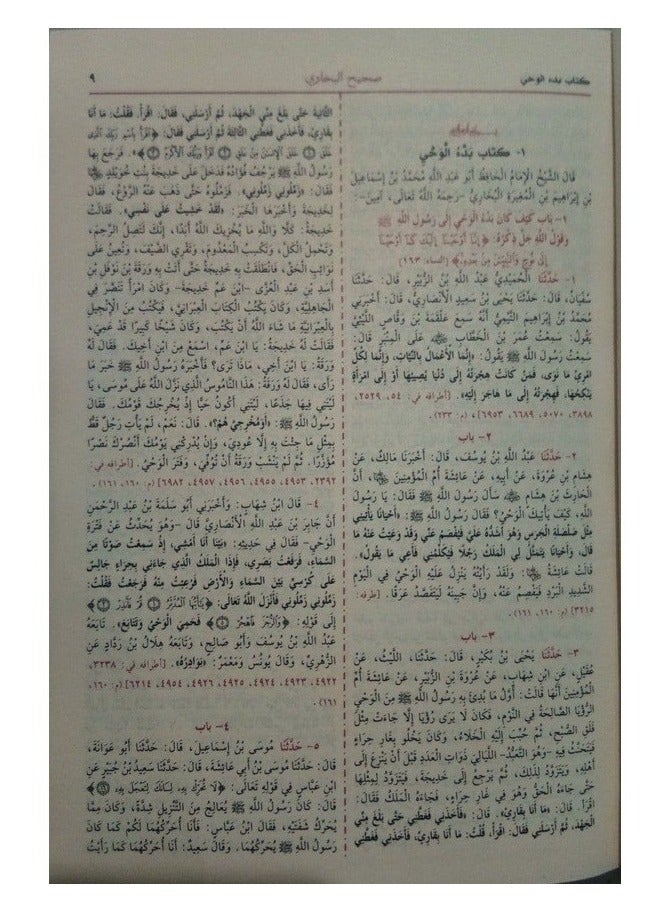 كتاب بدء الوحي
صحيح البخاري
٩
١- كتاب بدء الوحي
قال الشيخ الإمام الحافظ أبو عبد الله محمد بن إسماعيل
بن إبراهيم بن المغيرة البخاري -رحمه الله تعالى، آمين-:
١- باب كيف كان بدء الوحي إلى رسول الله ﷺ
وقول الله جل ذكره: ﴿إنا أوحينا إليك كما أوحينا
إلى نوح والنبيين من بعده﴾ [النساء: ١٦٣]
١- حدثنا الحميدي عبد الله بن الزبير، قال: حدثنا
سفيان، قال: حدثنا يحيى بن سعيد الأنصاري، قال: أخبرني
محمد بن إبراهيم التيمي أنه سمع علقمة بن وقاص الليثي
يقول: سمعت عمر بن الخطاب على المنبر قال:
سمعت رسول الله ﷺ يقول: «إنما الأعمال بالنيات، وإنما لكل
امرئ ما نوى، فمن كانت هجرته إلى دنيا يصيبها أو إلى امرأة
ينكحها، فهجرته إلى ما هاجر إليه». [أطرافه في: ٥٤، ٢٥٢٩،
٣٨٩٨، ٥٠٧٠، ٦٦٨٩، ٦٩٥٣]، (م: ٢٣٣).
٢- باب
٢- حدثنا عبد الله بن يوسف، قال: أخبرنا مالك، عن
هشام بن عروة، عن أبيه، عن عائشة أم المؤمنين، أن
الحارث بن هشام سأل رسول الله ﷺ فقال: يا رسول
الله، كيف يأتيك الوحي؟ فقال رسول الله ﷺ: «أحيانا يأتيني
مثل صلصلة الجرس وهو أشده علي فيفصم عني وقد وعيت عنه ما
قال، وأحيانا يتمثل لي الملك رجلا فيكلمني فأعي ما يقول».
قالت عائشة: ولقد رأيته ينزل عليه الوحي في اليوم
الشديد البرد فيفصم عنه، وإن جبينه ليتفصد عرقا. [طرفه:
٣٢١٥] [م: ١٦٠، ١٦١].
٣- باب
٣- حدثنا يحيى بن بكير، قال: حدثنا، الليث، عن
عقيل، عن ابن شهاب، عن عروة بن الزبير، عن عائشة أم
المؤمنين أنها قالت: أول ما بدئ به رسول الله ﷺ من الوحي
الرؤيا الصالحة في النوم، فكان لا يرى رؤيا إلا جاءت مثل
فلق الصبح، ثم حبب إليه الخلاء، وكان يخلو بغار حراء
فيتحنث فيه -وهو التعبد- الليالي ذوات العدد قبل أن ينزع إلى
أهله، ويتزود لذلك، ثم يرجع إلى خديجة، فيتزود لمثلها
حتى جاءه الحق وهو في غار حراء، فجاءه الملك فقال:
اقرأ. قال: «ما أنا بقارئ». قال: «فأخذني فغطني حتى بلغ مني
الجهد، ثم أرسلني فقال: اقرأ، قلت: ما أنا بقارئ، فأخذني فغطني
الثانية حتى بلغ مني الجهد، ثم أرسلني، فقال: اقرأ. فقلت: ما أنا
بقارئ، فأخذني فغطني الثالثة ثم أرسلني فقال: ﴿اقرأ باسم ربك الذي
خلق خلق الإنسن من علق اقرأ وربك الأكرم﴾». فرجع بها
رسول الله ﷺ يرجف فؤاده فدخل على خديجة بنت خويلد
فقال: «زملوني زملوني». فزملوه حتى ذهب عنه الروع، فقال
لخديجة وأخبرها الخبر: «لقد خشيت على نفسي». فقالت
خديجة: كلا والله ما يخزيك الله أبدا، إنك لتصل الرحم،
وتحمل الكل، وتكسب المعدوم، وتقري الضيف، وتعين على
نوائب الحق، فانطلقت به خديجة حتى أتت به ورقة بن نوفل بن
أسد بن عبد العزى -ابن عم خديجة- وكان امرأ تنصر في
الجاهلية، وكان يكتب الكتاب العبراني، فيكتب من الإنجيل
بالعبرانية ما شاء الله أن يكتب، وكان شيخا كبيرا قد عمي،
فقالت له خديجة: يا ابن عم، اسمع من ابن أخيك. فقال له
ورقة: يا ابن أخي، ماذا ترى؟ فأخبره رسول الله ﷺ خبر ما
رأى، فقال له ورقة: هذا الناموس الذي نزل الله على موسى، يا
ليتني فيها جذعا، ليتني أكون حيا إذ يخرجك قومك. فقال
رسول الله ﷺ: «أومخرجي هم؟». قال: نعم، لم يأت رجل قط
بمثل ما جئت به إلا عودي، وإن يدركني يومك أنصرك نصرا
مؤزرا. ثم لم ينشب ورقة أن توفي، وفتر الوحي. [أطرافه في:
٣٣٩٢، ٤٩٥٣، ٤٩٥٥، ٤٩٥٦، ٤٩٥٧، ٦٩٨٢] [م: ١٦٠، ١٦١].
٤- قال ابن شهاب: وأخبرني أبو سلمة بن عبد الرحمن
أن جابر بن عبد الله الأنصاري قال -وهو يحدث عن فترة
الوحي- فقال في حديثه: «بينا أنا أمشي، إذ سمعت صوتا من
السماء، فرفعت بصري، فإذا الملك الذي جاءني بحراء جالس
على كرسي بين السماء والأرض فرعبت منه فرجعت فقلت:
زملوني زملوني فأنزل الله تعالى: ﴿يأيها المدثر قم فأنذر﴾
إلى قوله: ﴿والرجز فاهجر﴾ فحمي الوحي وتتابع». تابعه
عبد الله بن يوسف وأبو صالح، وتابعه هلال بن رداد عن
الزهري، وقال يونس ومعمر: «بوادره». [أطرافه في: ٣٢٣٨،
٤٩٢٢، ٤٩٢٣، ٤٩٢٤، ٤٩٢٥، ٤٩٢٦، ٤٩٥٤، ٦٢١٤] [م: ١٦٠،
١٦١].
٤- باب
٥- حدثنا موسى بن إسماعيل، قال: حدثنا أبو عوانة،
قال: حدثنا موسى بن أبي عائشة، قال: حدثنا سعيد بن جبير عن
ابن عباس في قوله تعالى: ﴿لا تحرك به لسانك لتعجل به﴾
قال: كان رسول الله ﷺ يعالج من التنزيل شدة، وكان مما
يحرك شفتيه، فقال ابن عباس: فأنا أحركهما لكم كما كان
رسول الله ﷺ يحركهما. وقال سعيد: أنا أحركهما كما رأيت